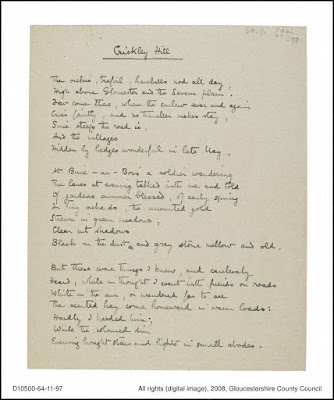 64.11 (97)
98
Crickley Hill
The orchis, trefoil, harebells nod all day,
High above Gloucester and the Severn plain.
Few come there, where the curlew ever and again
Cries faintly, and no traveller makes stay,
Since steep the road is,
And the villages
Hidden by hedges wonderful in late May.
At Buire-au-Bois a soldier wandering
The lanes at evening talked with me and told
Of gardens summer blessed, of early spring
In tiny orchards, the uncounted gold
Strewn in green meadows,
Clear cut shadows
Black on the dust and gray stone mellow and old.
But these were things I knew, and carelessly
Heard, while in thought I went with friends on roads
White in the sun, or wandered far to see
The scented hay come homeward in warm loads.
Hardly I heeded him;
While the coloured dim
Evening brought stars and lights in small abodes.
D10500-64-11-97
All rights (digital image), 2008, Gloucestershire County Council